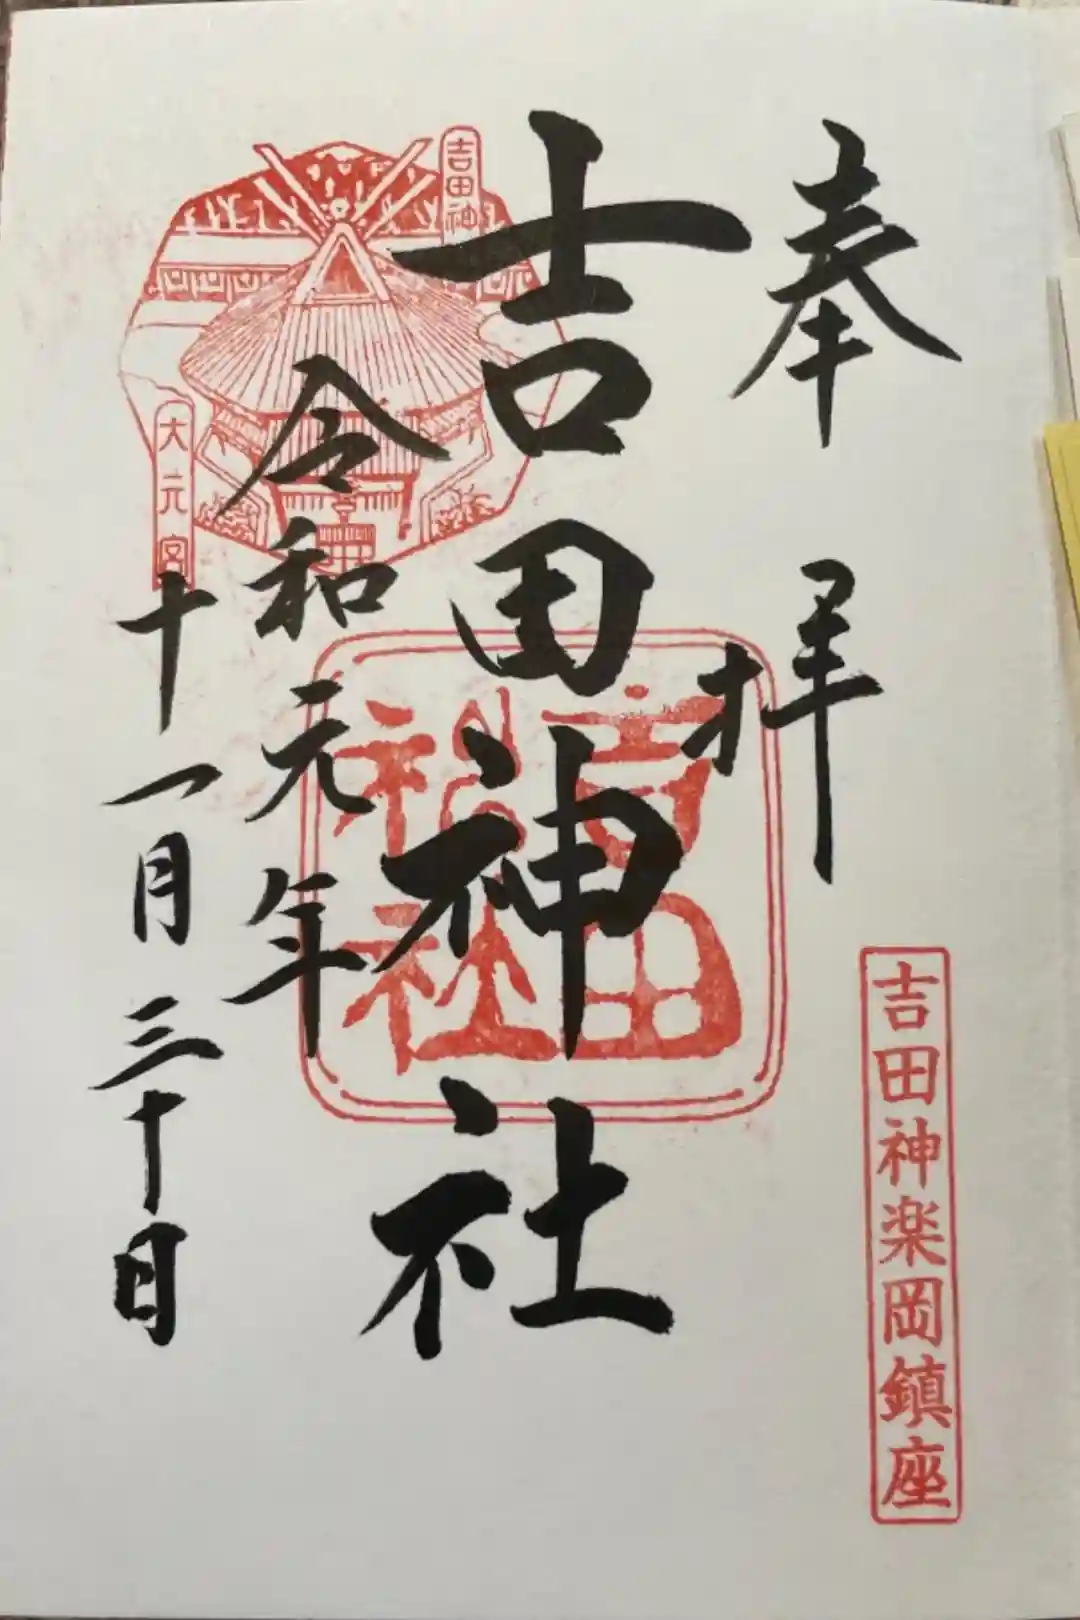 奉拝
吉田神楽岡鎮座
吉田神社
吉田神社
吉田神
大元宮
令和元年
十一月三十日